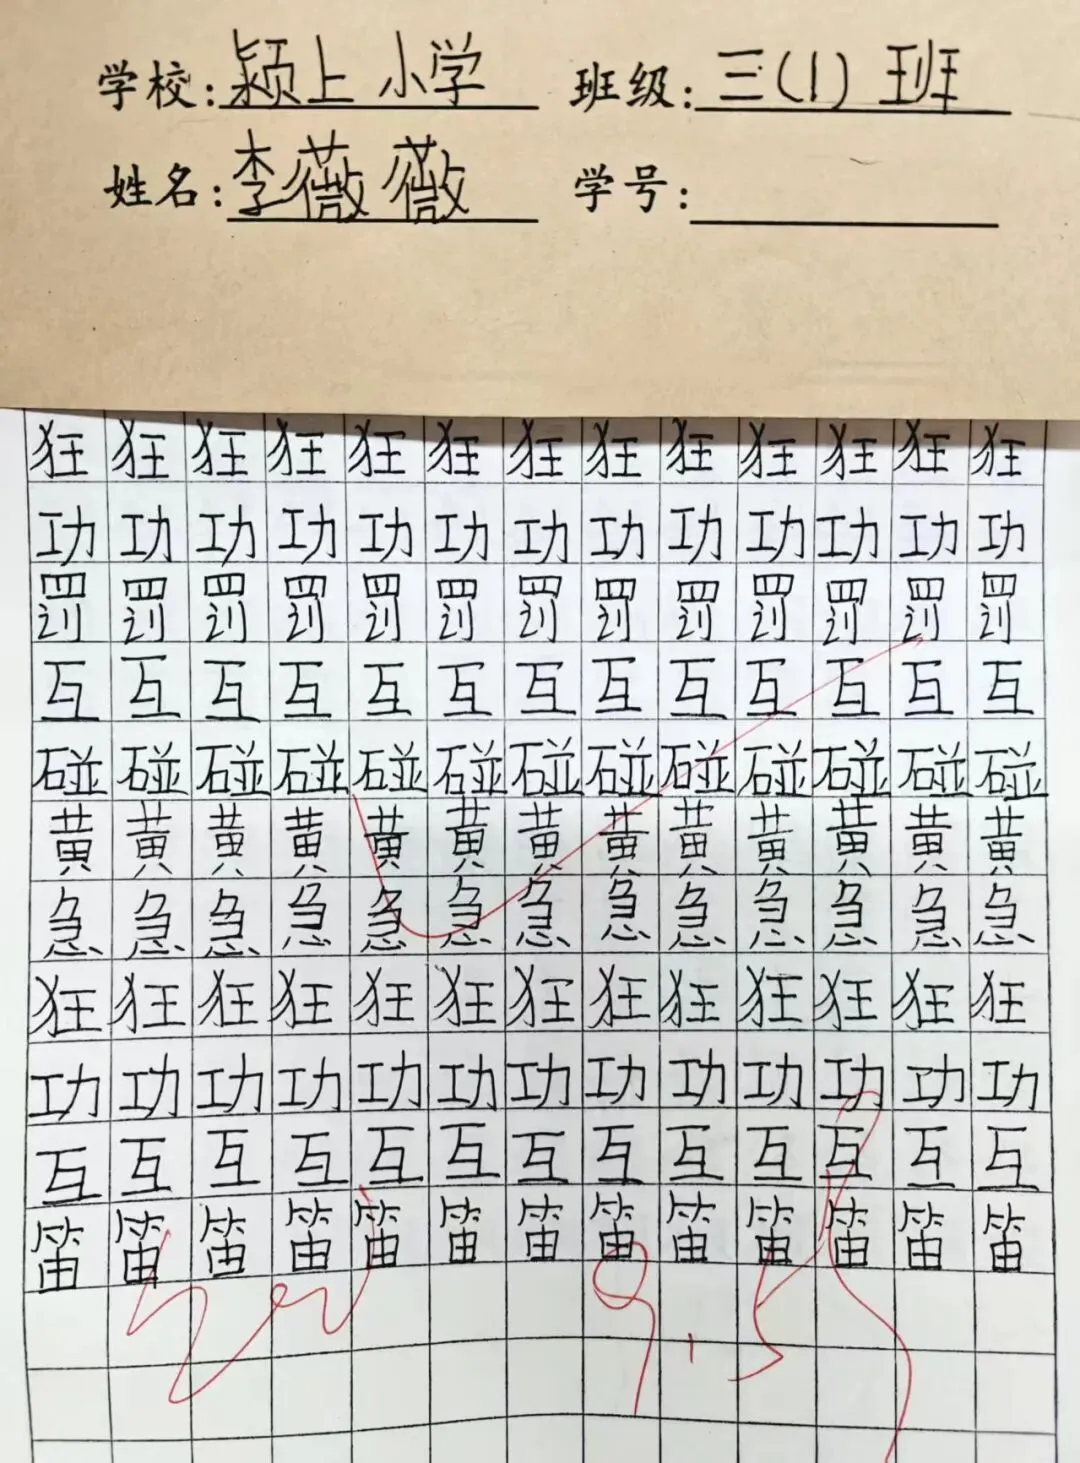 学校:颍上小学 班级:三(1)班
姓名:李薇薇 学号:
狂狂狂狂狂狂狂狂狂狂狂狂狂
功功功功功功功功功功功功功
罚罚罚罚罚罚罚罚罚罚罚罚罚
互互互互互互互互互互互互互
碰碰碰碰碰碰碰碰碰碰碰碰碰
黄黄黄黄黄黄黄黄黄黄黄黄黄
急急急急急急急急急急急急急
狂狂狂狂狂狂狂狂狂狂狂狂狂
功功功功功功功功功功功功功
互互互互互互互互互互互互互
笛笛笛笛笛笛笛笛笛笛笛笛笛
9.5